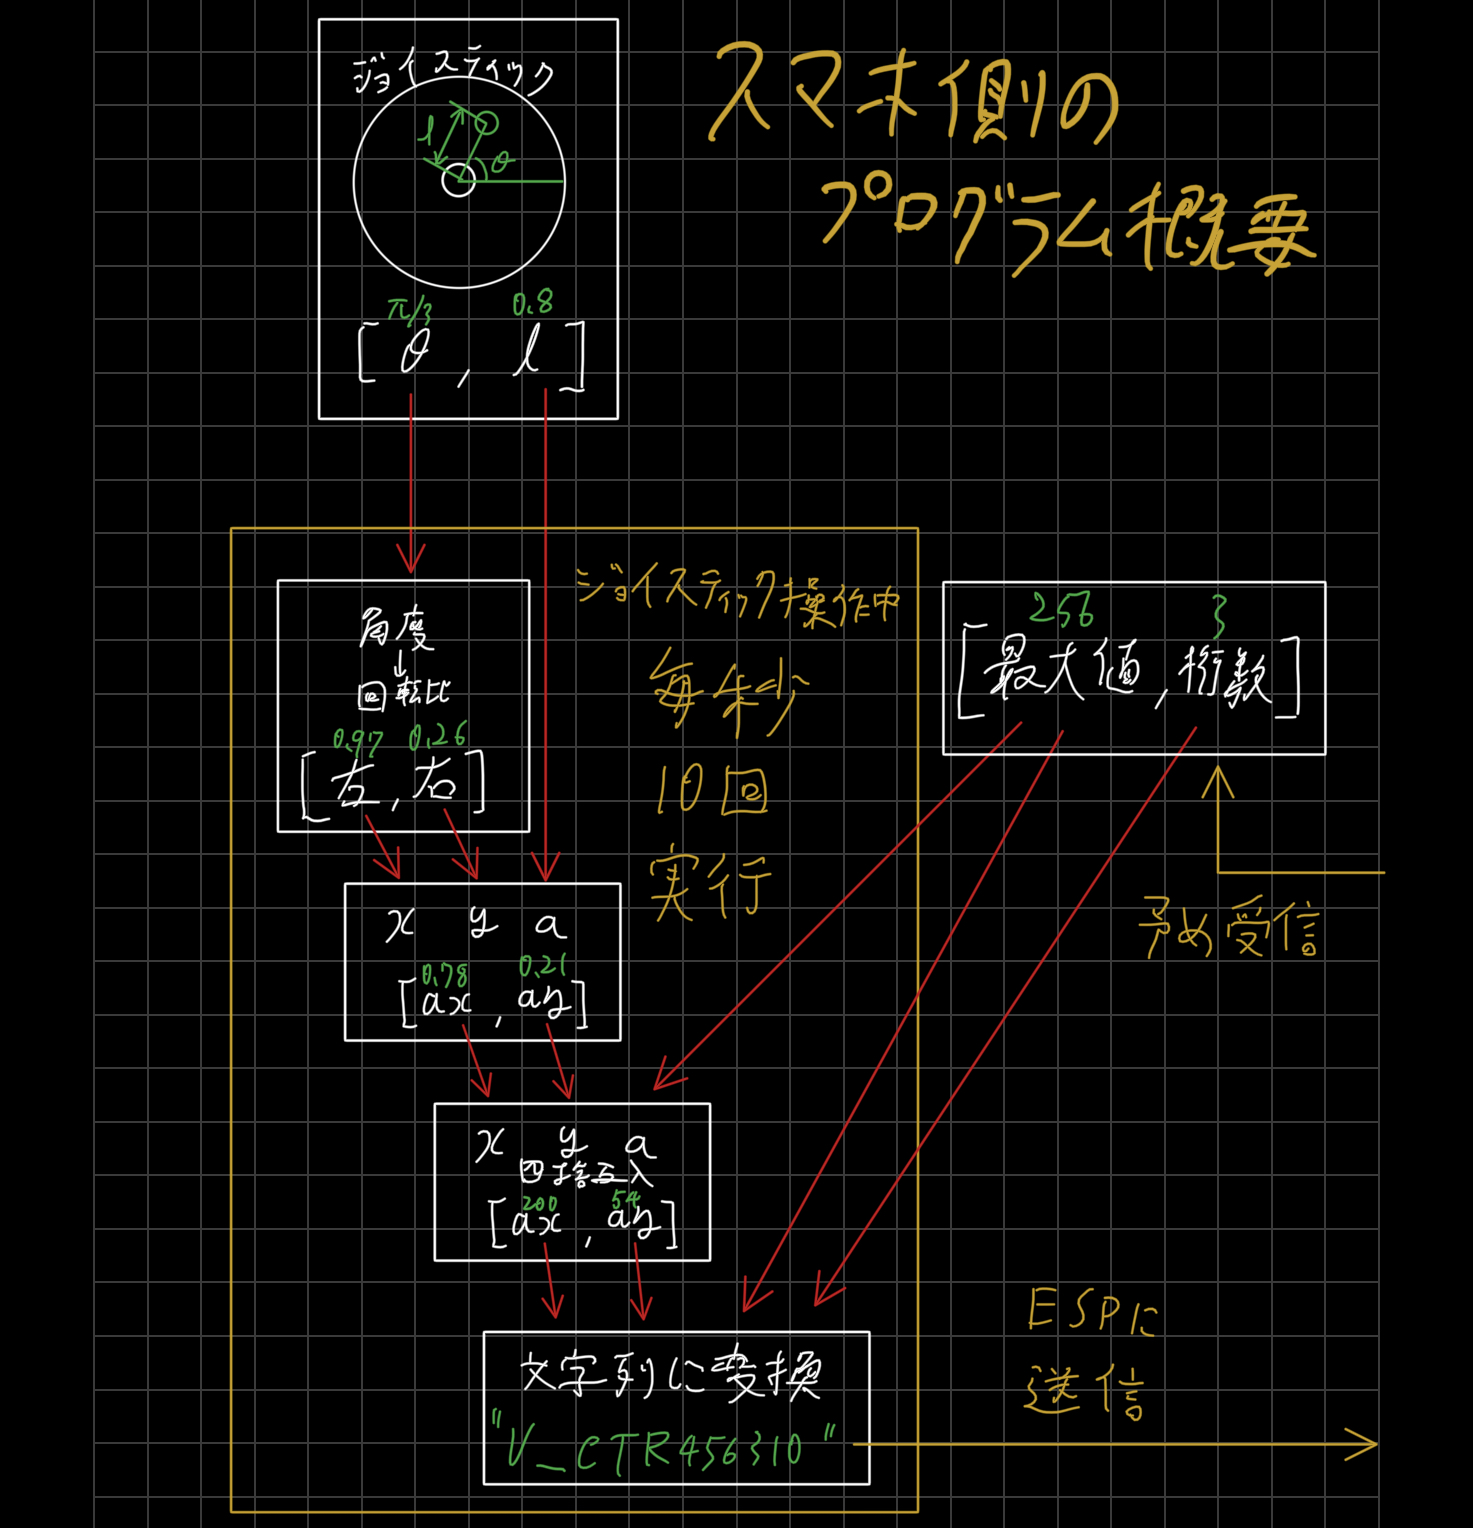 スマホ側の
プログラム概要
ジョイスティック
l
θ
π/3 0.8
[θ, l]
ジョイスティック操作中
毎秒
10回
実行
角度
↓
回転比
0.97 0.26
[左, 右]
256 3
[最大値, 桁数]
予め受信
x y a
0.78 0.21
[ax, ay]
x y a
四捨五入
200 54
[ax, ay]
文字列に変換
"V_CTR456310"
ESPに
送信